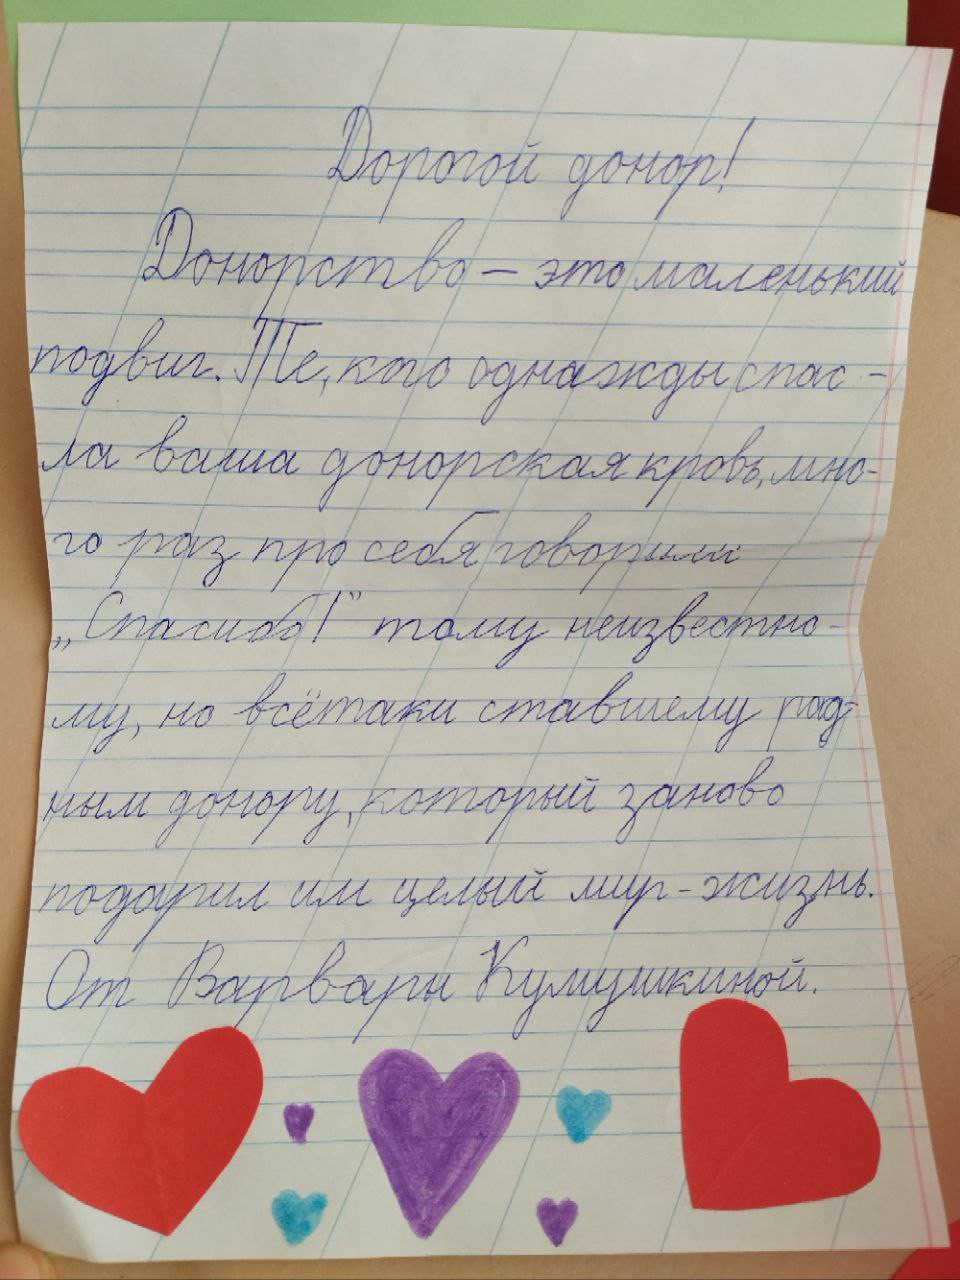 Дорогой донор!
Донорство – это маленький
подвиг. Те, кого однажды спас-
ла ваша донорская кровь, мно-
го раз про себя говорили
„Спасибо!" тому неизвестно-
му, но всётаки ставшему род-
ным донору, который заново
подарил им целый мир-жизнь.
От Варвары Кумушкиной.